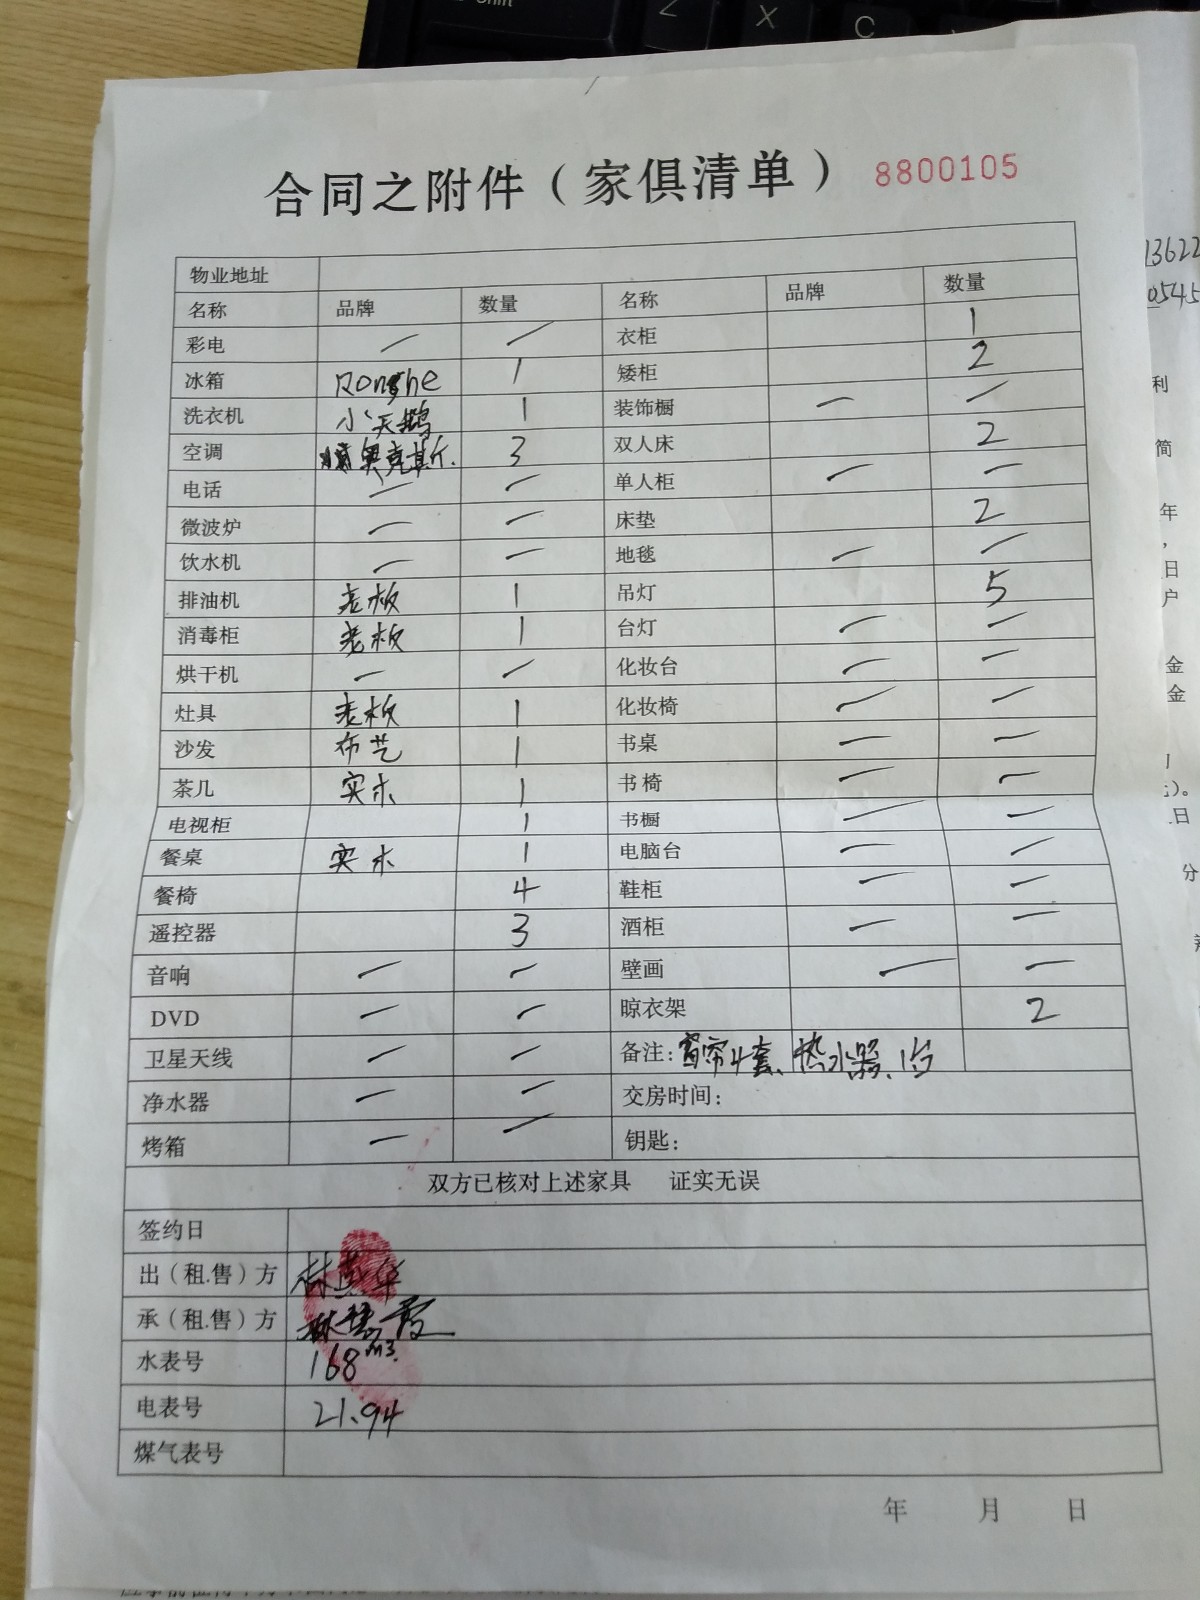 合同之附件（家俱清单） 8800105
物业地址
名称 品牌 数量 名称 品牌 数量
彩电 — — 衣柜 1
冰箱 Rongshe 1 矮柜 2
洗衣机 小天鹅 1 装饰橱 — —
空调 奥克斯. 3 双人床 2
电话 — — 单人柜 — —
微波炉 — — 床垫 2
饮水机 — — 地毯 — —
排油机 老板 1 吊灯 5
消毒柜 老板 1 台灯 — —
烘干机 — — 化妆台 — —
灶具 老板 1 化妆椅 — —
沙发 布艺 1 书桌 — —
茶几 实木 1 书椅 — —
电视柜 1 书橱 — —
餐桌 实木 1 电脑台 — —
餐椅 4 鞋柜 — —
遥控器 3 酒柜 — —
音响 — — 壁画 — —
DVD — — 晾衣架 2
卫星天线 — — 备注：窗帘4套、热水器、1台
净水器 — — 交房时间：
烤箱 — — 钥匙：
双方已核对上述家具 证实无误
签约日
出（租.售）方
承（租.售）方
水表号 168m3.
电表号 21.94
煤气表号
年 月 日
13622
0545
利
简
年
，
日
户
金
金
）。
日
分